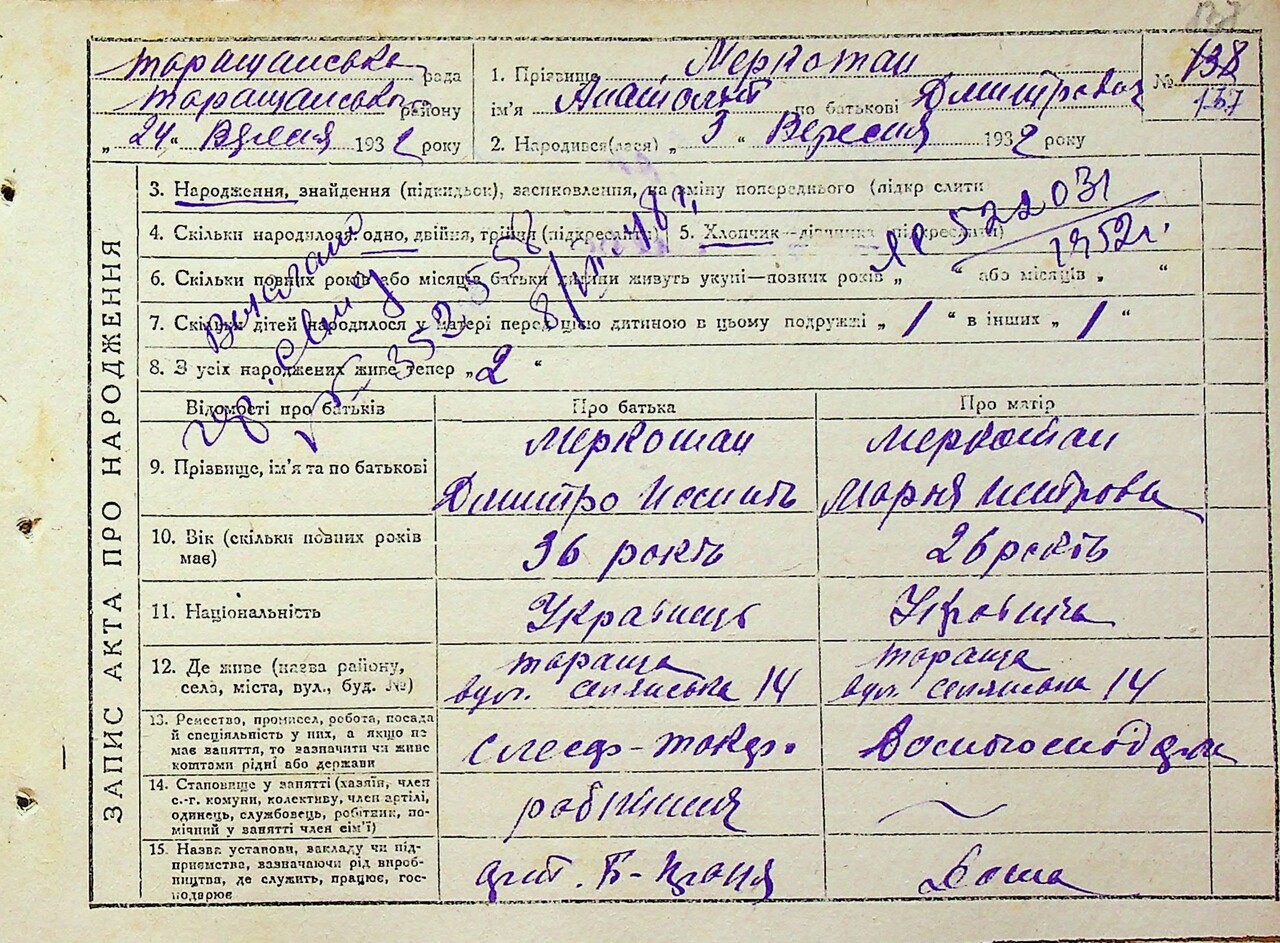 Таращанська рада
Таращанського району
„ 24 “ Вересня 1932 року
1. Прізвище Меркотан
ім'я Анатолій по батькові Дмитрович
2. Народився(лася) „ 3 “ Вересня 1932 року
№ 138
137
ЗАПИС АКТА ПРО НАРОДЖЕННЯ
3. Народження, знайдення (підкидьок), засиновлення, на зміну попереднього (підкр слити
4. Скільки народилося: одно, двійня, трійня (підкреслити) 5. Хлопчик—дівчинка (підкреслити)
6. Скільки повних років або місяців батьки дитини живуть укупі—повних років „ “ або місяців „ “
7. Скільки дітей народилося у матері перед цією дитиною в цьому подружжі „ 1 “ в інших „ 1 “
8. З усіх народжених живе тепер „ 2 “
№ 522031
1952г.
352558
Відомості про батьків Про батька Про матір
9. Прізвище, ім'я та по батькові
Меркотан
Дмитро
Меркотан
Мария
10. Вік (скільки повних років
має)
36 років
26 років
11. Національність
Українець
Українка
12. Де живе (назва району,
села, міста, вул., буд. №)
Тараща
вул. 14
Тараща
вул. 14
13. Ремество, промисел, робота, посада
й спеціяльність у них, а якщо не
має заняття, то зазначити чи живе
коштами рідні або держави
слесар-токар.
Домогосподарка
14. Становище у занятті (хазяїн, член
с.-г. комуни, колективу, член артілі,
одинець, службовець, робітник, по-
мічний у занятті член сім'ї)
робітник
15. Назва установи, закладу чи під-
приємства, зазначаючи рід вироб-
ництва, де служить, працює, гос-
подарює
Дома